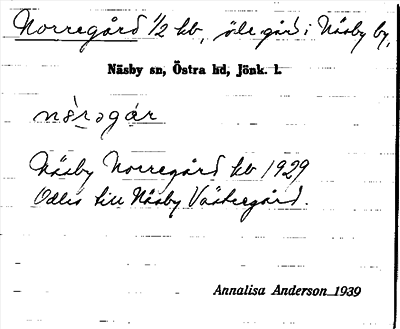 Norregård 1/2 kb, öde gård i Näsby by,
Näsby sn, Östra hd, Jönk. l.
nòrəgár
Näsby Norregård kb 1929
Odlas till Näsby Västregård.
Annalisa Anderson 1939